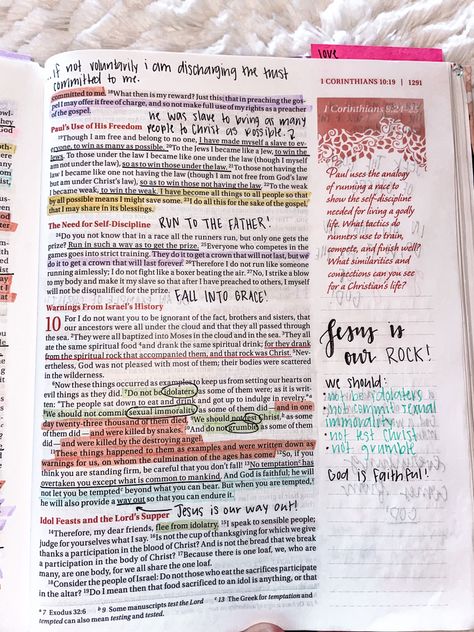 ...if not voluntarily i am discharging the trust
committed to me.
LOVE
1 CORINTHIANS 10:19 | 1291
committed to me. 18What then is my reward? Just this: that in preaching the gos-
pel I may offer it free of charge, and so not make full use of my rights as a preacher
of the gospel.
he was slave to bring as many
people to Christ as possible.
Paul's Use of His Freedom
19Though I am free and belong to no one, I have made myself a slave to ev-
eryone, to win as many as possible. 20To the Jews I became like a Jew, to win the
Jews. To those under the law I became like one under the law (though I myself
am not under the law), so as to win those under the law. 21To those not having the
law I became like one not having the law (though I am not free from God's law
but am under Christ's law), so as to win those not having the law. 22To the weak
I became weak, to win the weak. I have become all things to all people so that
by all possible means I might save some. 23I do all this for the sake of the gospel,
that I may share in its blessings.
The Need for Self-Discipline
RUN TO THE FATHER!
24Do you not know that in a race all the runners run, but only one gets the
prize? Run in such a way as to get the prize. 25Everyone who competes in the
games goes into strict training. They do it to get a crown that will not last, but we
do it to get a crown that will last forever. 26Therefore I do not run like someone
running aimlessly; I do not fight like a boxer beating the air. 27No, I strike a blow
to my body and make it my slave so that after I have preached to others, I myself
will not be disqualified for the prize.
FALL INTO GRACE!
Warnings From Israel's History
10 For I do not want you to be ignorant of the fact, brothers and sisters, that
our ancestors were all under the cloud and that they all passed through
the sea. 2They were all baptized into Moses in the cloud and in the sea. 3They all
ate the same spiritual food 4and drank the same spiritual drink; for they drank
from the spiritual rock that accompanied them, and that rock was Christ. 5Nev-
ertheless, God was not pleased with most of them; their bodies were scattered
in the wilderness.
6Now these things occurred as examples to keep us from setting our hearts on
evil things as they did. 7Do not be idolaters, as some of them were; as it is writ-
ten: "The people sat down to eat and drink and got up to indulge in revelry."a
8We should not commit sexual immorality, as some of them did — and in one
day twenty-three thousand of them died. 9We should not test Christ,b as some
of them did — and were killed by snakes. 10And do not grumble, as some of them
did — and were killed by the destroying angel.
11These things happened to them as examples and were written down as
warnings for us, on whom the culmination of the ages has come. 12So, if you
think you are standing firm, be careful that you don't fall! 13No temptationc has
overtaken you except what is common to mankind. And God is faithful; he will
not let you be temptedc beyond what you can bear. But when you are tempted,c
he will also provide a way out so that you can endure it.
Jesus is our way out!
Idol Feasts and the Lord's Supper
14Therefore, my dear friends, flee from idolatry. 15I speak to sensible people;
judge for yourselves what I say. 16Is not the cup of thanksgiving for which we give
thanks a participation in the blood of Christ? And is not the bread that we break
a participation in the body of Christ? 17Because there is one loaf, we, who are
many, are one body, for we all share the one loaf.
18Consider the people of Israel: Do not those who eat the sacrifices participate
in the altar? 19Do I mean then that food sacrificed to an idol is anything, or that
a 7 Exodus 32:6 b 9 Some manuscripts test the Lord c 13 The Greek for temptation and
tempted can also mean testing and tested.
1 Corinthians 9:24–27
Paul uses the analogy
of running a race to
show the self-discipline
needed for living a godly
life. What tactics do
runners use to train,
compete, and finish well?
What similarities and
connections can you see
for a Christian's life?
Jesus is
our ROCK!
we should:
•not be idolaters
•not commit sexual
immorality
•not test Christ
•not grumble
God is faithful!